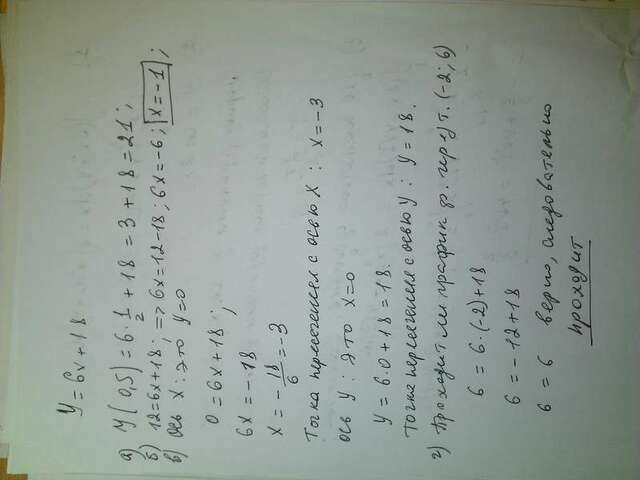 y = 6x + 18
а) y(0,5) = 6 · 1/2 + 18 = 3 + 18 = 21;
б) 12 = 6x + 18; => 6x = 12 - 18; 6x = -6; x = -1;
в) Ось x: это y = 0
0 = 6x + 18;
6x = -18
x = -18/6 = -3
Точка пересечения с осью x: x = -3
ось y: это x = 0
y = 6 · 0 + 18 = 18.
Точка пересечения с осью y: y = 18.
г) Проходит ли график ф. через т. (-2; 6)
6 = 6 · (-2) + 18
6 = -12 + 18
6 = 6 верно, следовательно
проходит